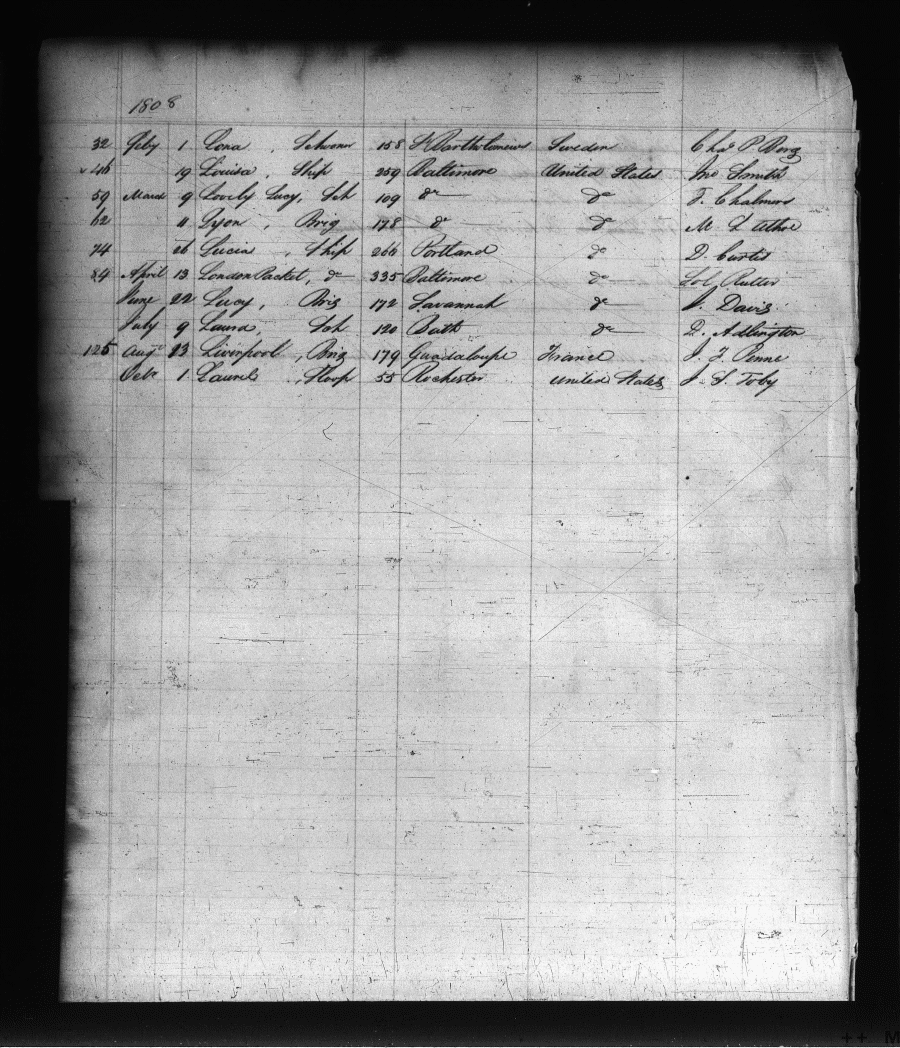 1808
32 Feby 1 Lona, Schooner 158 St Bartholomews Sweden Chas P Berg
46 19 Louisa, Ship 259 Baltimore United States Jno Smith
59 March 9 Lovely Lucy, Sch 109 do do T. Chalmers
62 11 Lyon, Brig 178 do do M.
74 26 Lucia, Ship 266 Portland do D. Curtis
84 April 13 London Packet, do 335 Baltimore do Sol Rutter
June 22 Lucy, Brig 172 Savannah do J. Davis
July 9 Laura, Sch 120 Bath do D. Adlington
125 Augt 13 Liverpool, Brig 179 Guadaloupe France J. F. Penne
Octr 1 Laurel, Sloop 55 Rochester United States J. S. Toby
++ M